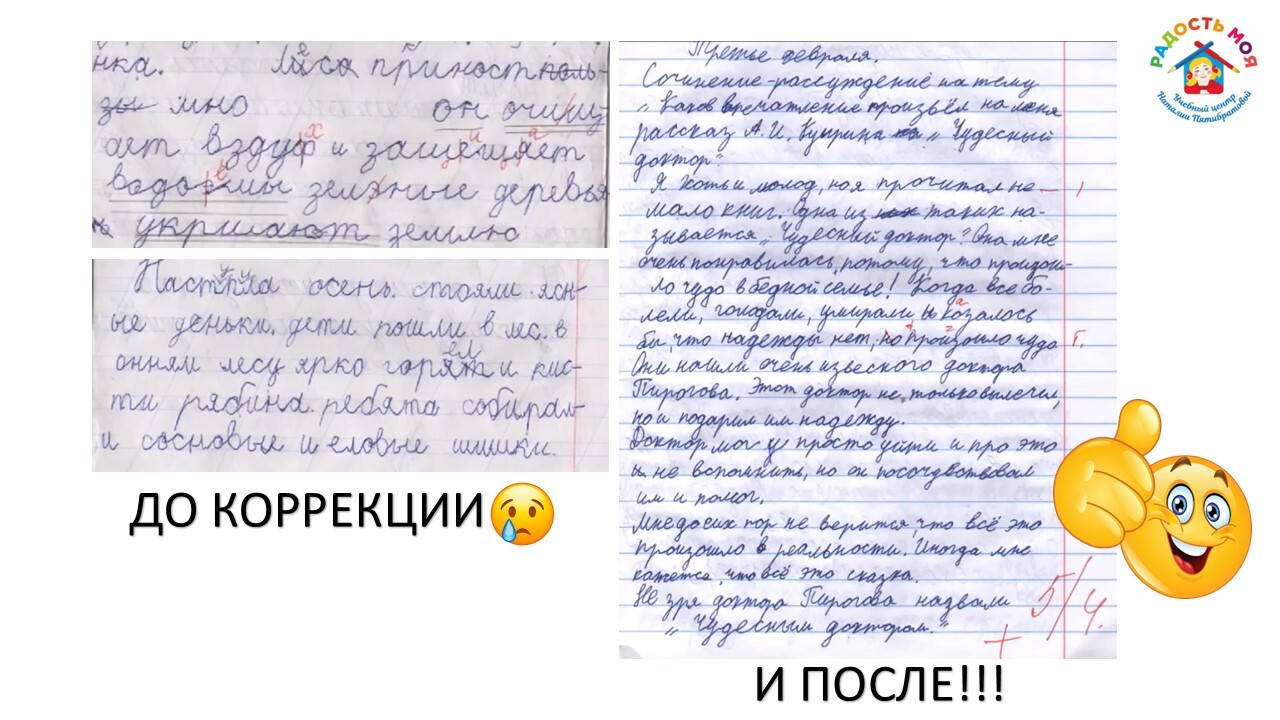 нка. Леса приносят поль-
зы мно он очищу-
ает вздух и защещяет
водоемы зеленые деревья
укришают землю
Настпила осень. стояли ясн-
ые деньки. дети пошли в лес. в
онням лесу ярко горят и кис-
ти рябина. ребята собирал-
и сосновые и еловые шишки.
ДО КОРРЕКЦИИ
Третье февраля.
Сочинение-рассуждение на тему
„Каков впечатление произвёл на меня
рассказ А.И. Куприна „Чудесный
доктор"
Я хоть и молод, но я прочитал не-
мало книг. Одна из таких на-
зывается „Чудесный доктор". Она мне
очень понравилась, потому, что произош-
ло чудо в бедной семье! Когда все бо-
лели, голодали, умирали и козалось
бы, что надежды нет, но произошло чудо
Они нашли очень извеского доктора
Пирогова. Этот доктор не только вылечил,
но и подарил им надежду.
Доктор мог у просто уйти и про это
и не вспомнить, но он посочувствовал
им и помог.
Мне до сих пор не верится, что всё это
произошло в реальности. Иногда мне
кажется, что всё это сказка.
Не зря доктора Пирогова назвали
„Чудесным доктором."
5/4.
И ПОСЛЕ!!!
РАДОСТЬ МОЯ
Учебный центр
Наталии Пятибратовой